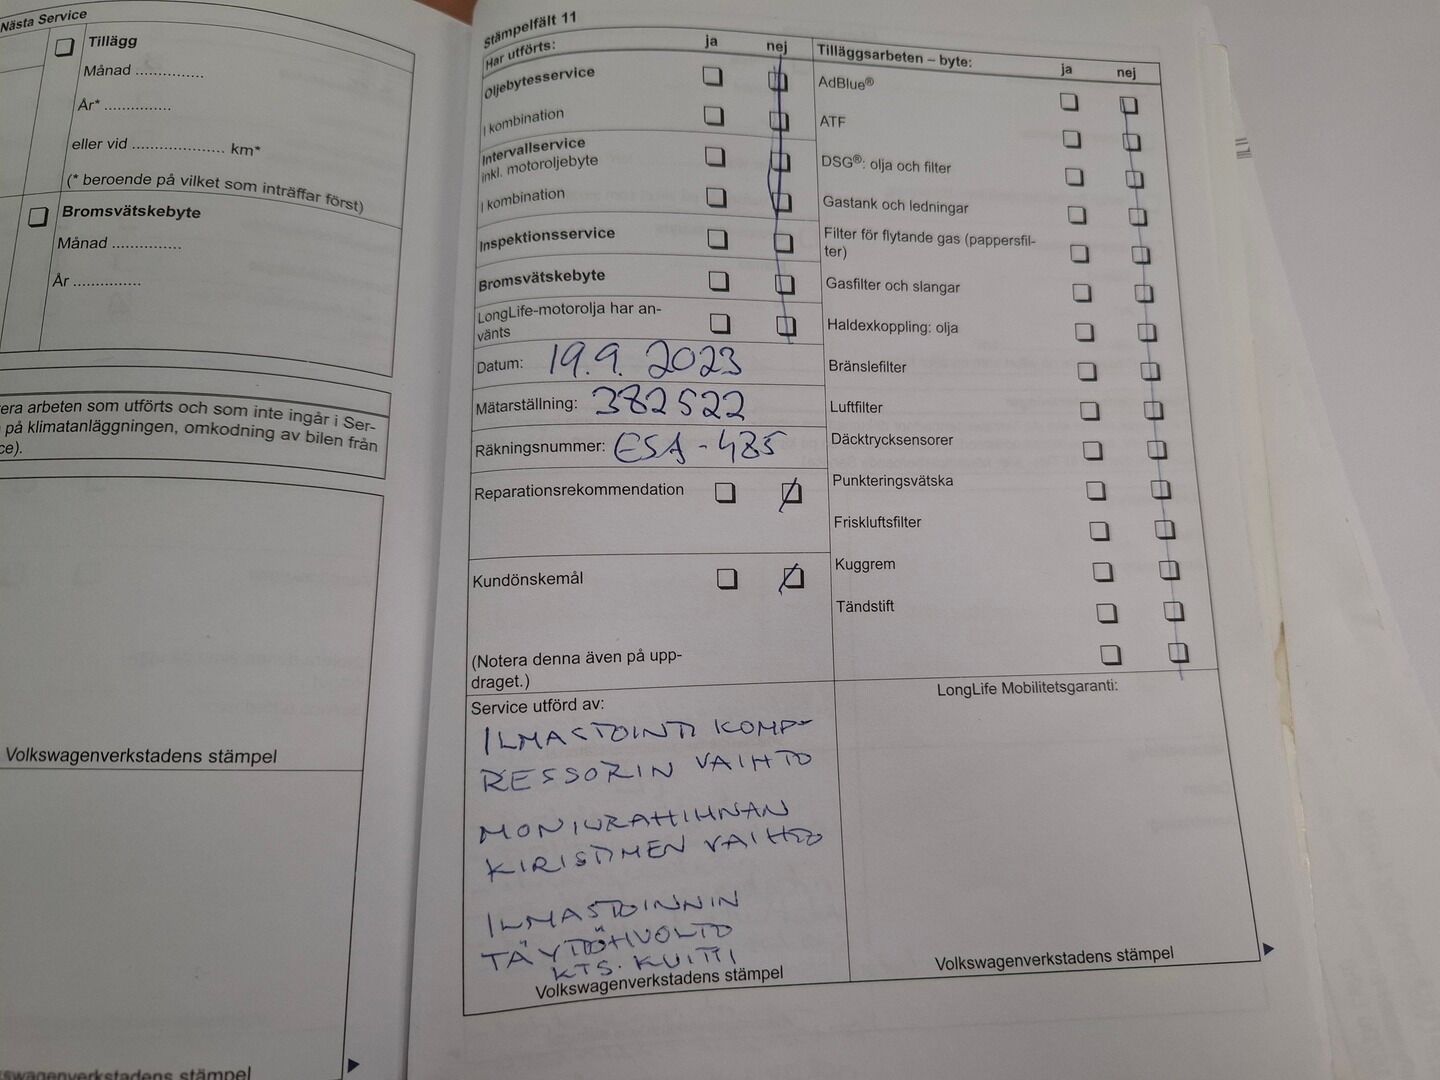 Nästa Service
Tillägg
Månad ...............
År* ...............
eller vid .................... km*
(* beroende på vilket som inträffar först)
Bromsvätskebyte
Månad ...............
År ...............
era arbeten som utförts och som inte ingår i Ser-
på klimatanläggningen, omkodning av bilen från
ce).
Volkswagenverkstadens stämpel
swagenverkstadens stämpel
Stämpelfält 11
Har utförts: ja nej
Oljebytesservice
I kombination
Intervallservice
inkl. motoroljebyte
I kombination
Inspektionsservice
Bromsvätskebyte
LongLife-motorolja har an-
vänts
Datum: 19.9. 2023
Mätarställning: 382522
Räkningsnummer: ESA-485
Reparationsrekommendation
Kundönskemål
(Notera denna även på upp-
draget.)
Service utförd av:
ILMASTOINTI KOMP-
RESSORIN VAIHTO
MONIURAHIHNAN
KIRISTIMEN VAIHTO
ILMASTOINNIN
TÄYTTÖHUOLTO
KTS. KUITTI
Volkswagenverkstadens stämpel
Tilläggsarbeten – byte: ja nej
AdBlue®
ATF
DSG®: olja och filter
Gastank och ledningar
Filter för flytande gas (pappersfil-
ter)
Gasfilter och slangar
Haldexkoppling: olja
Bränslefilter
Luftfilter
Däcktrycksensorer
Punkteringsvätska
Friskluftsfilter
Kuggrem
Tändstift
LongLife Mobilitetsgaranti:
Volkswagenverkstadens stämpel